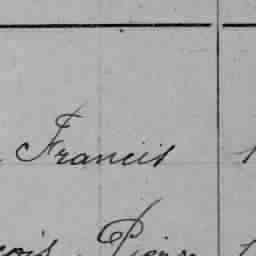 Francis
çois Pierre